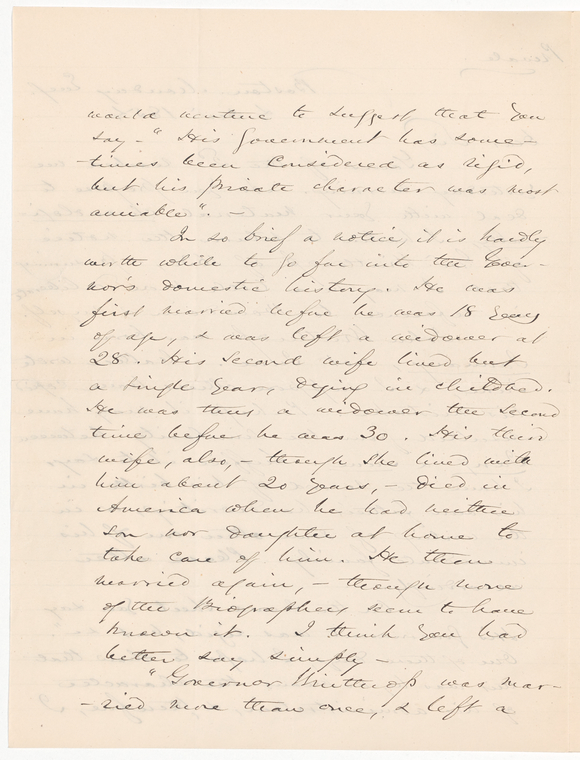 would venture to suggest that you
say - "His Government has some-
-times been considered as rigid,
but his private character was most
amiable". -
In so brief a notice, it is hardly
worth while to go far into the Gover-
nor's domestic history. He was
first married before he was 18 years
of age, & was left a widower at
28. His second wife lived but
a single year, dying in childbed.
He was thus a widower the second
time before he was 30. His third
wife, also, - though she lived with
him about 20 years, - died in
America when he had neither
son nor daughter at home to
take care of him. He then
married again, - though none
of the Biographers seem to have
known it. I think you had
better say simply -
"Governor Winthrop was mar-
-ried more than once, & left a